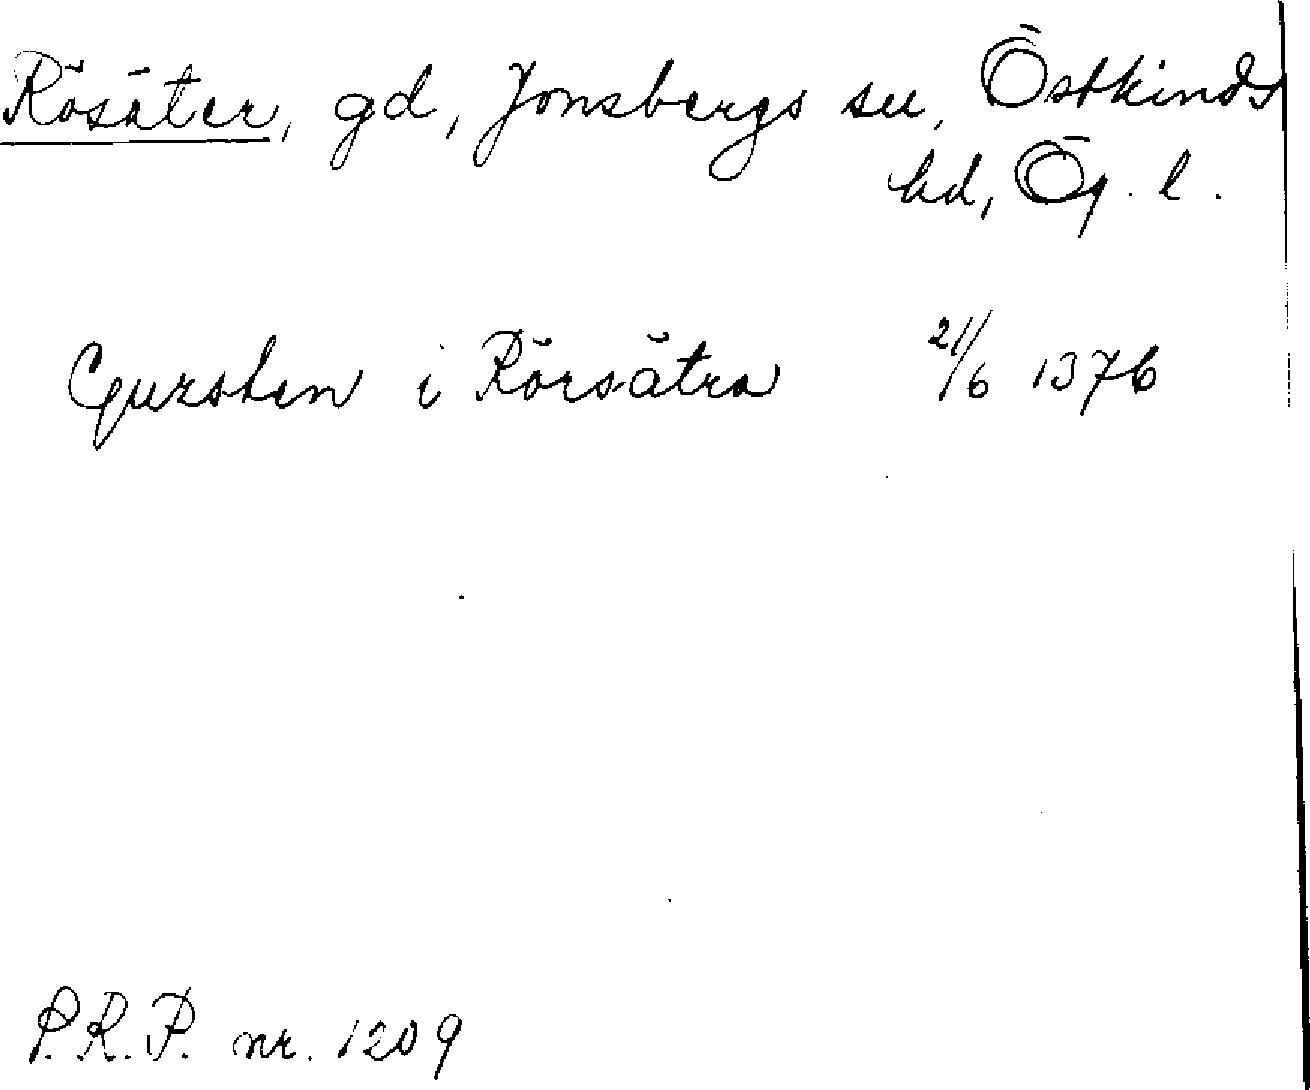 Rösäter, gd, Jonsbergs sn, Östkinds
hd, Ög. l.
Gursten i Rörsätra 21/6 1376
P.R.P. nr. 1209